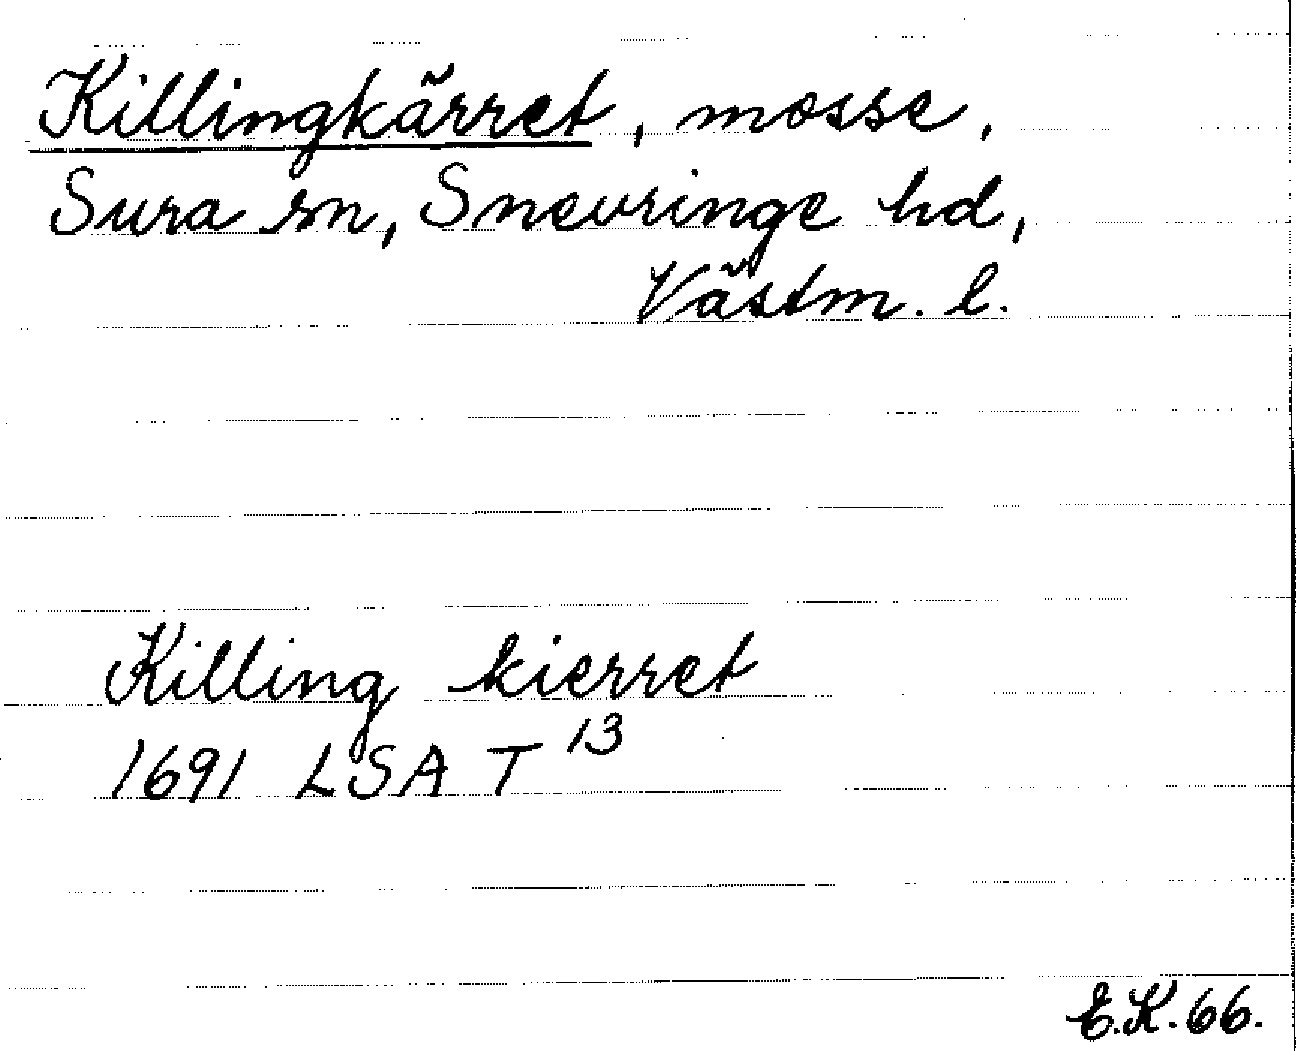 Killingkärret, mosse,
Sura sn, Snevringe hd,
Västm. l.
Killing kierret
1691 LSA T 13
E.K. 66.